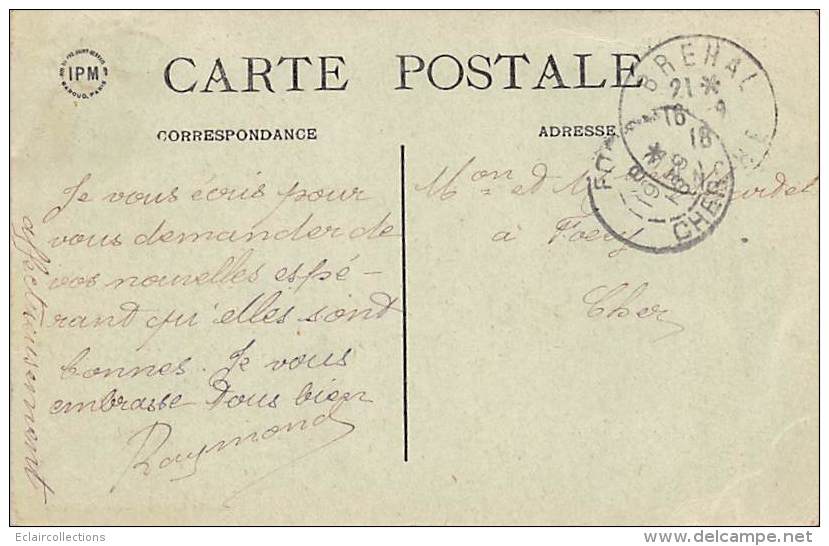 IPM
CARTE POSTALE
CORRESPONDANCE
ADRESSE
BREHAL
21 * 
16 - 9
18
CHER
Je vous écris pour
vous demander de
vos nouvelles espé-
rant qu'elles sont
bonnes. Je vous
embrasse tous bien
Raymond
affectueusement
Mon et M
à Foecy
Cher
Eclaircollections
delcampe.net